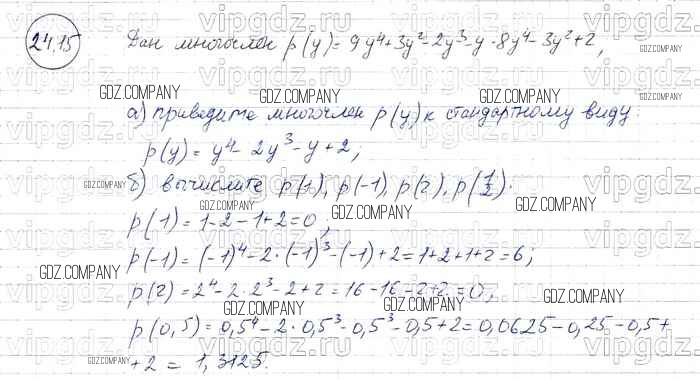 24.15 Дан многочлен p(y)=9y⁴+3y²-2y³-y-8y⁴-3y²+2,
а) приведите многочлен p(y) к стандартному виду:
p(y)=y⁴-2y³-y+2;
б) вычислите p(1), p(-1), p(2), p(1/2).
p(1)=1-2-1+2=0;
p(-1)=(-1)⁴-2·(-1)³-(-1)+2=1+2+1+2=6;
p(2)=2⁴-2·2³-2+2=16-16-2+2=0;
p(0,5)=0,5⁴-2·0,5³-0,5³-0,5+2=0,0625-0,25-0,5+
+2=1,3125.